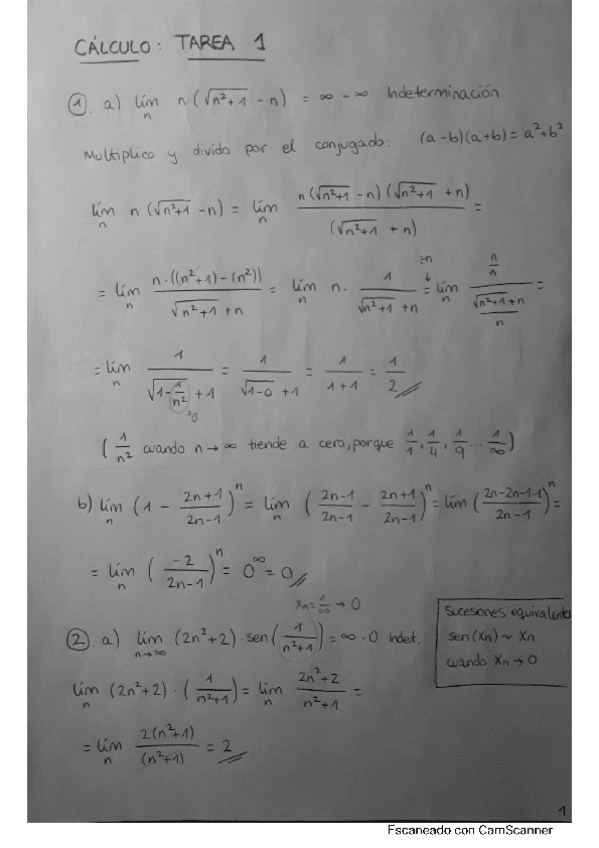 CÁLCULO: TAREA 1
① a) lím_n n(√(n²+1) - n) = ∞ - ∞ Indeterminación
Multiplico y divido por el conjugado: (a-b)(a+b) = a²+b²
lím_n n(√(n²+1) - n) = lím_n n(√(n²+1) - n)(√(n²+1) + n) / (√(n²+1) + n) =
= lím_n n·((n²+1)-(n²)) / (√(n²+1) + n) = lím_n n · 1 / (√(n²+1) + n) =(÷n ↓) lím_n (n/n) / ((√(n²+1) + n)/n) =
= lím_n 1 / (√(1-1/n²) + 1) = 1 / (√(1-0) + 1) = 1/(1+1) = 1/2
→0
(1/n² cuando n→∞ tiende a cero, porque 1/1, 1/4, 1/9 ... 1/∞)
b) lím_n (1 - (2n+1)/(2n-1))^n = lím_n ((2n-1)/(2n-1) - (2n+1)/(2n-1))^n = lím ((2n-2n-1-1)/(2n-1))^n =
= lím_n (-2/(2n-1))^n = 0^∞ = 0
Xn = 1/∞ → 0
② a) lím_{n→∞} (2n²+2) · sen(1/(n²+1)) = ∞ · 0 Indet.
Sucesiones equivalentes
sen(Xn) ~ Xn
cuando Xn → 0
lím_n (2n²+2) · (1/(n²+1)) = lím_n (2n²+2)/(n²+1) =
= lím_n 2(n²+1)/(n²+1) = 2
1
Escaneado con CamScanner